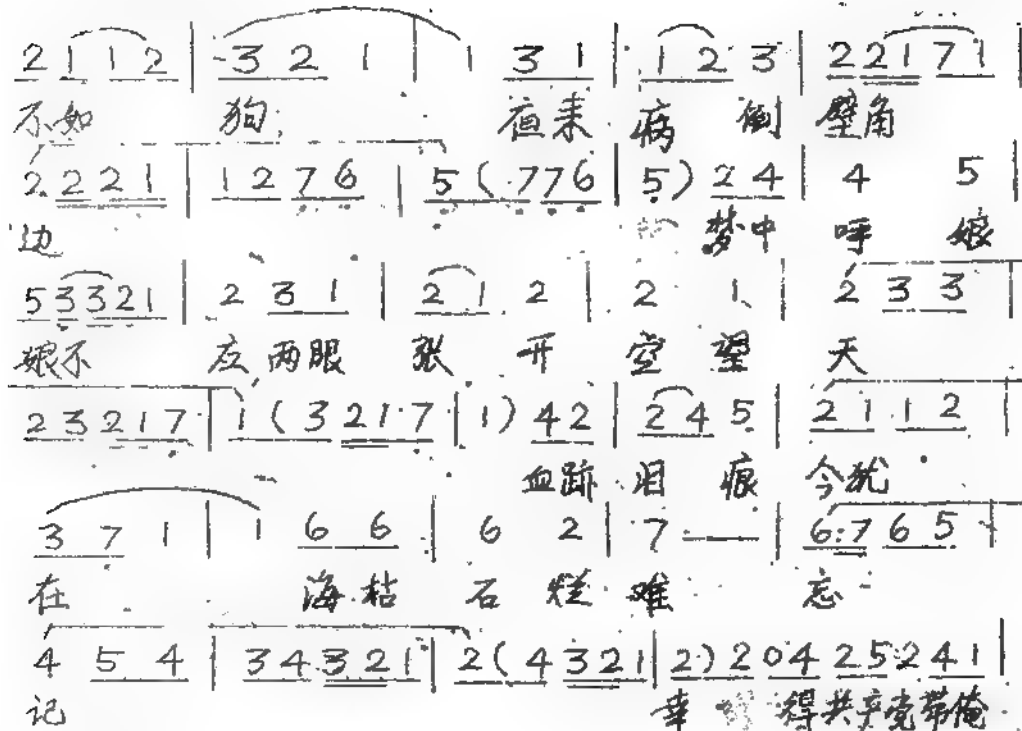 2 1 1 2 | 3 2 1 | 1 3 1 | 1 2 3 | 2 2 1 7 1 |
不如 狗 夜来 病 倒 壁角
2. 2 2 1 | 1 2 7 6 | 5 ( 7 7 6 | 5 ) 2 4 | 4 5 |
边 梦中 呼 娘
5 3 3 2 1 | 2 3 1 | 2 1 2 | 2 1 | 2 3 3 |
娘不 应 两眼 张 开 空 望 天
2 3 2 1 7 | 1 ( 3 2 1 7 | 1 ) 4 2 | 2 4 5 | 2 1 1 2 |
血跡 泪 痕 今犹
3 7 1 | 1 6 6 | 6 2 | 7 — | 6. 7 6 5 |
在 海枯 石 烂 难 忘
4 5 4 | 3 4 3 2 1 | 2 ( 4 3 2 1 | 2 ) 2 0 4 2 5 2 4 1 |
记 幸 得共产党带俺